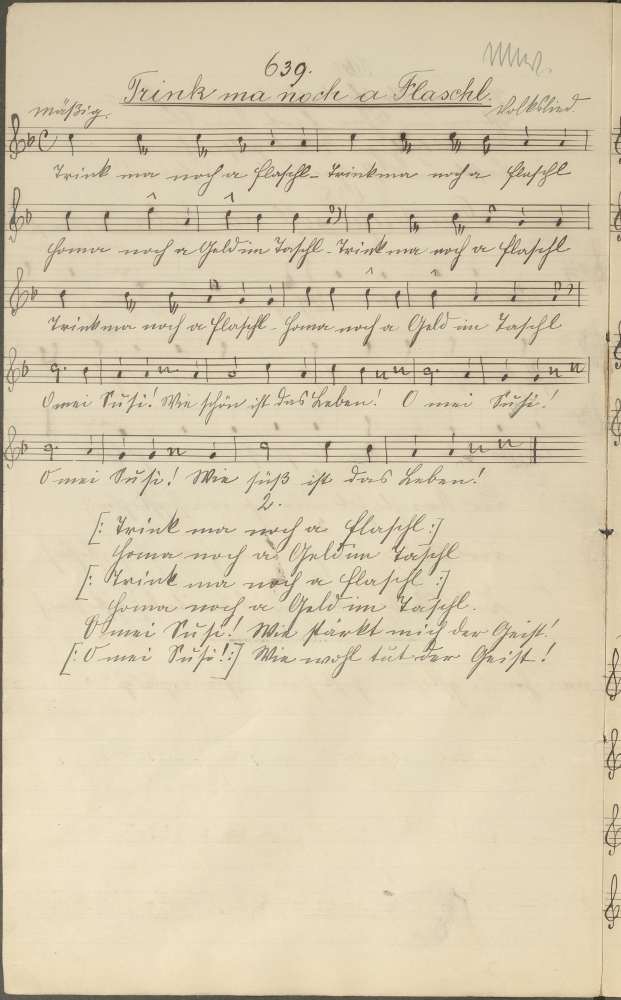 639.
Trink ma noch a Flaschl.
mäßig.
Volkslied
Trink ma noch a Flaschl - Trink ma noch a Flaschl
Homa noch a Geld im Taschl - Trink ma noch a Flaschl
Trink ma noch a Flaschl - Homa noch a Geld im Taschl
O mei Susi! Wie schön ist das Leben! O mei Susi!
O mei Susi! Wie süß ist das Leben!
2.
[: Trink ma noch a Flaschl :]
Homa noch a Geld im Taschl
[: Trink ma noch a Flaschl :]
Homa noch a Geld im Taschl.
O mei Susi! Wie stärkt mich der Geist!
[: O mei Susi! :] Wie wohl tut der Geist!